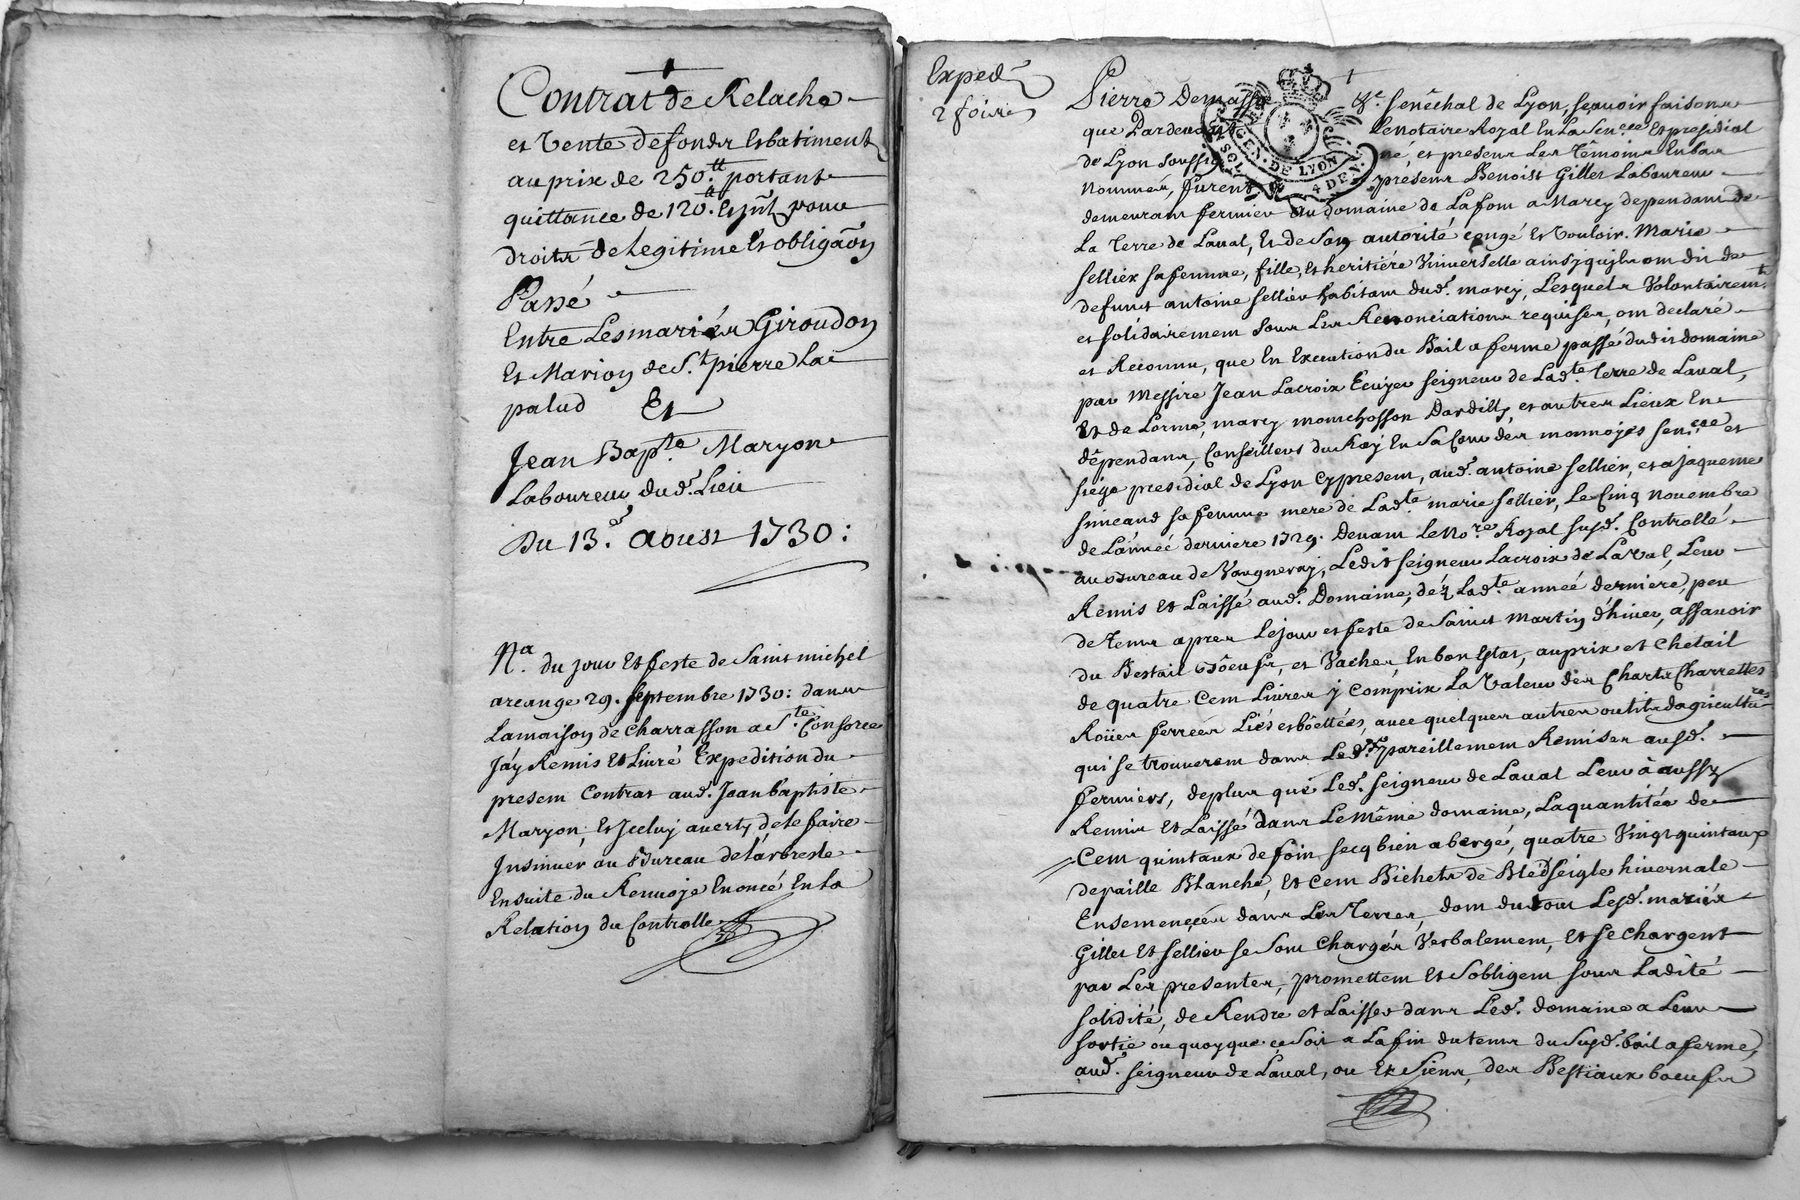 Contrat de Relache
et Vente de fonds Et batiment
au prix de 250.tt portant
quittance de 120.tt Et sūt pour
droits de Legitime Et obligāon
Passé
Entre Les mariés Giroudon
Et Marion de S.t pierre La
palud Et
Jean Bap.te Maryon
Laboureur dud. Lieu
Du 13.e aoust 1730 :
N.a du jour Et feste de Saint michel
arcange 29. septembre 1730 : dans
La maison de Charrasson a S.te Consorce
J'ay Remis Et Livré Expedition du
present Contrat aud. Jean baptiste
Maryon, Et Jceluy averty de le faire
Insinuer au Bureau de Larbresle
Ensuite du Renvoje Enoncé En la
Relation du Controlle
Exped.
2 foires
Pierre Demasso S.r Senéchal de Lyon, sçavoir faisons
GEN. DE LYON
SOL 4 DEN.
que Pardevant Le notaire Royal En La Sen.cee Et presidial
de Lyon soussigné, et presens Les témoins En bas
Nommés, furent presens Benoist Gillet Laboureur
demeurant fermier du domaine de Lafont a Marcy dependant de
La Terre de Laval, Et de Son autorité congé Et Vouloir. Marie
sellier sa femme, fille, Et heritiére Universelle ainsy qu'jls ont dit de
defunt antoine sellier habitant dud. marcy, Lesquels Volontairem.t
et solidairement sous Les Renonciations requises, ont declaré
et Reconnu, que En Execution du Bail a ferme passé dudit domaine
par Messire Jean Lacroix Ecuyer seigneur de Lad.te Terre de Laval,
Et de Lorme, marcy montchosson Dardilly et autres Lieux En
dépendans, Conseillers du Roy En Sa Cour des monnoyes sen.cee et
siége presidial de Lyon cy present, aud. antoine sellier, et a Jaqueme
simeand sa femme mere de Lad.te marie sellier, Le Cinq novembre
de L'année derniere 1729. devant Le No.re Royal susd. Controllé
au Bureau de Vaugneray, Ledit seigneur Lacroix de Laval, Leur
Remis Et Laissé aud. Domaine, dez Lad.te année derniere, peu
de tems apres Le jour et feste de Saint Martin d'hiver, assavoir
du Bestail Boeufs, et Vaches, En bon Estat, au prix et Chetail
de quatre Cent Livres y compris La Valeur des Chars Charrettes
Roües ferrées Liés et boëttées, avec quelques autres outils d'agricultures
qui se trouverent dans Led. pareillement Remises ausd.
fermiers, deplus que Led. seigneur de Laval Leur à aussy
Remis Et Laissé dans Le même domaine, La quantitée de
Cent quintaux de foin secq bien abergé, quatre Vingt quintaux
de paille Blanche, Et Cent Bichets de Bled seigle hivernale
Ensemencées dans Les Terres, dont du tout Lesd. mariés
Gillet Et sellier se Sont Chargés Verbalement, Et se Chargent
par Les presentes, promettent Et S'obligent sous Ladité
solidité, de Rendre et Laisser dans Led. domaine a Leur
sortie ou quoyque ce Soit a La fin du tems du Susd. bail a ferme,
aud. seigneur de Laval, ou Ez Siens, des Bestiaux boeufs